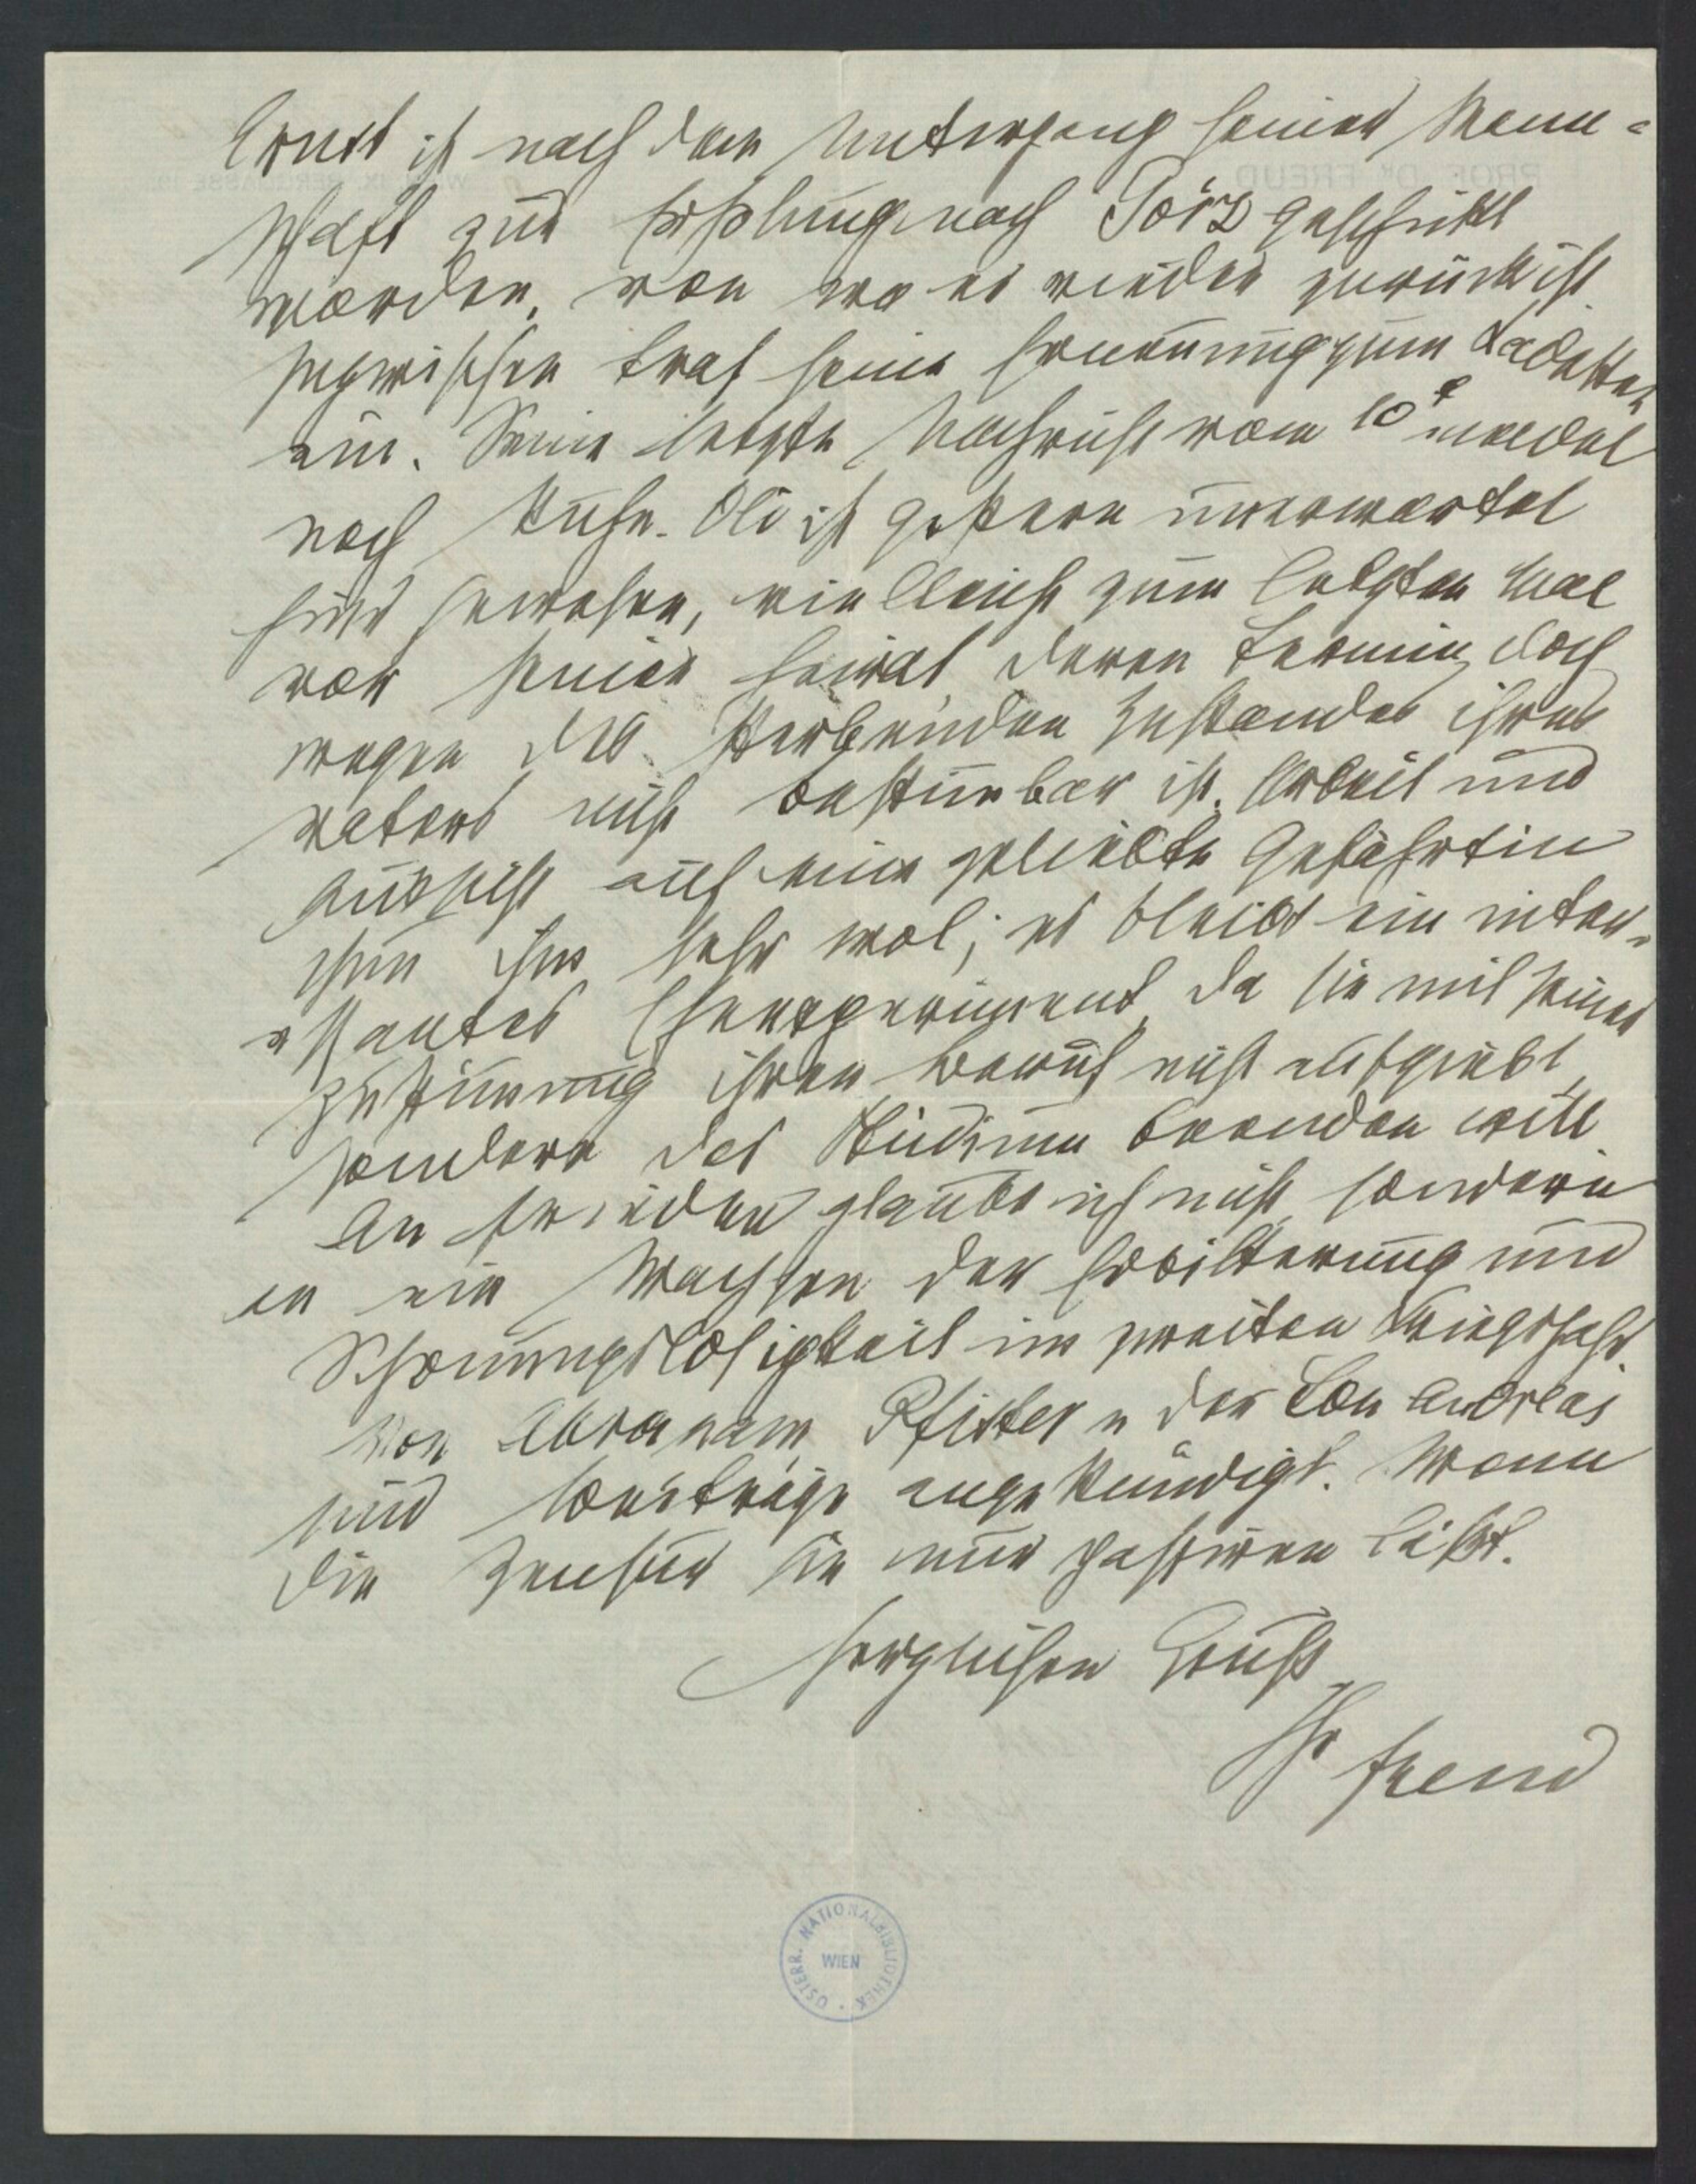 Ernst ist nach dem Untergang seiner Mann=
schaft zur Erholung nach Görz geschickt
worden, von wo er wieder zurück ist.
Inzwischen traf seine Ernennung zum Kadetten
ein. Seine letzte Nachricht vom 10ᵗ meldet
noch Ruhe. Oli ist gestern unerwartet
hier gewesen, vielleicht zum letzten Mal
vor seiner Heirat, deren Termin doch
wegen des sterbenden Zustandes ihres
Vaters nicht bestimmbar ist. Arbeit und
Aussicht auf eine geliebte Gefährtin
thun ihm sehr wol; es bleibt ein inter-
essantes Eheexperiment, da sie mit seiner
Zustimmung ihren Beruf nicht aufgiebt,
sondern das Studium beenden will.
An Frieden glaube ich nicht, sondern
an ein Wachsen der Erbitterung und
Schonungslosigkeit im zweiten Kriegsjahr.
Von Abraham, Pfister u der Lou Andreas
sind Beiträge angekündigt. Wenn
die Zensur sie nur passiren läßt.
Herzlichen Gruß
Ihr Freud
PROF. Dr. FREUD
WIEN, IX. BERGGASSE 19.
ÖSTERR. NATIONALBIBLIOTHEK
WIEN